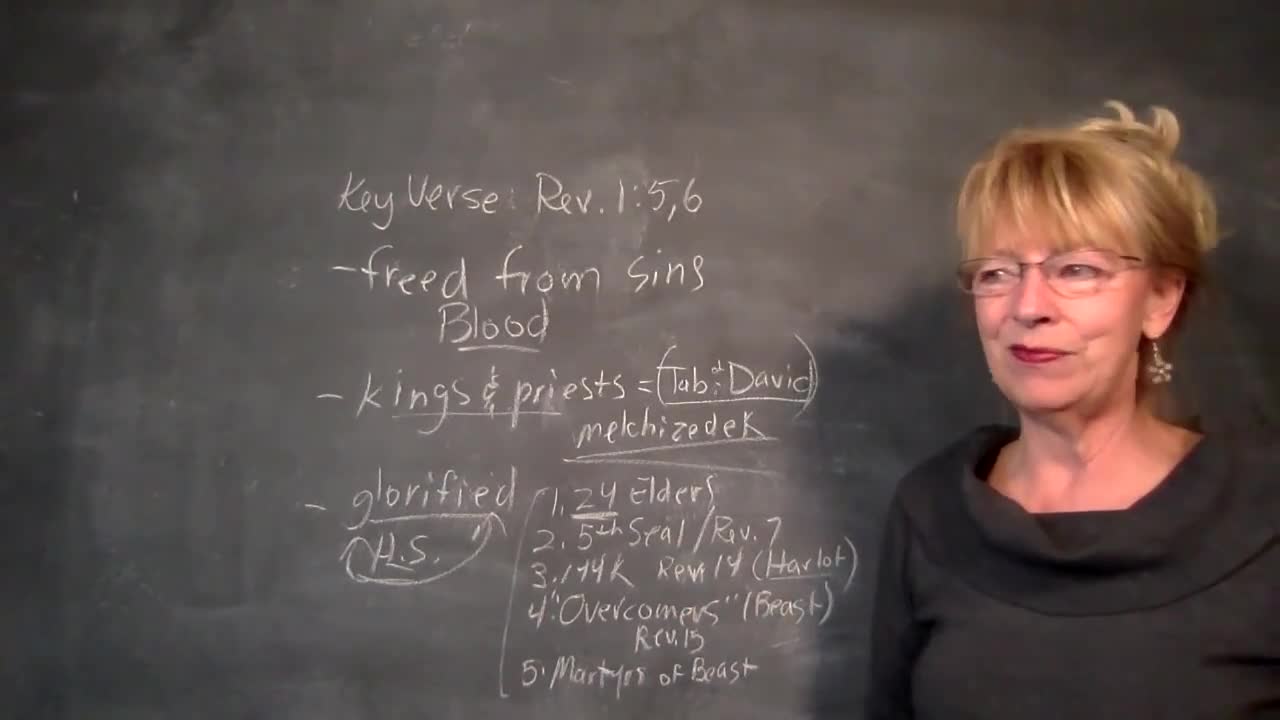 Key Verse: Rev. 1:5,6
-freed from sins
Blood
- kings & priests = (Tab. of David)
melchizedek
- glorified
H.S.
1. 24 Elders
2. 5th Seal / Rev. 7
3. 144K Rev. 14 (Harlot)
4. "Overcomers" (Beast)
Rev. 15
5. Martyrs of Beast